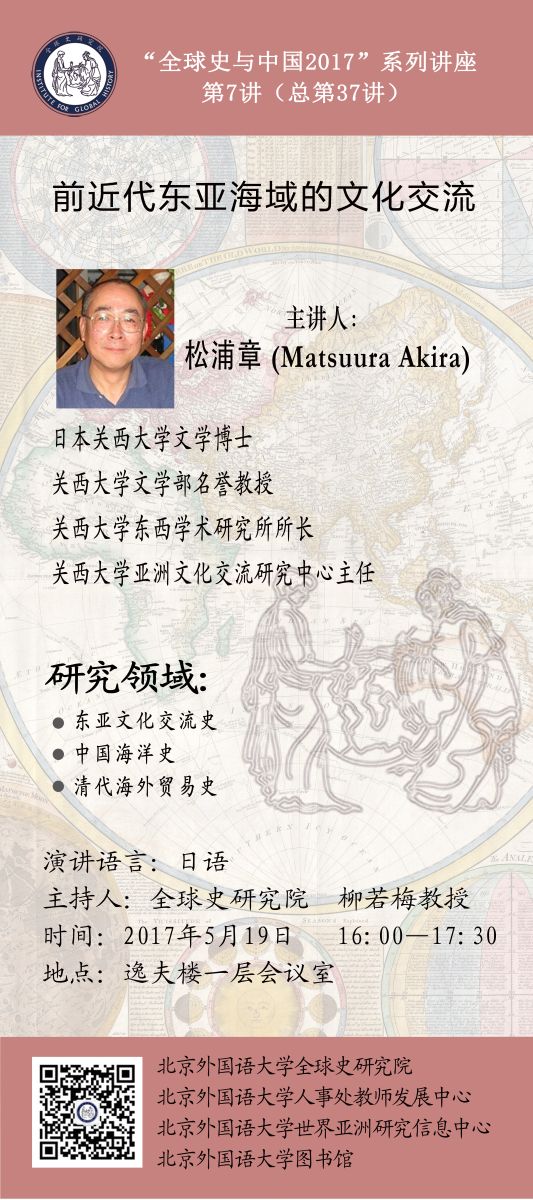 全球史研究院
INSTITUTE FOR GLOBAL HISTORY
“全球史与中国2017”系列讲座
第7讲（总第37讲）
前近代东亚海域的文化交流
主讲人：
松浦章 (Matsuura Akira)
日本关西大学文学博士
关西大学文学部名誉教授
关西大学东西学术研究所所长
关西大学亚洲文化交流研究中心主任
研究领域：
● 东亚文化交流史
● 中国海洋史
● 清代海外贸易史
演讲语言：日语
主持人：全球史研究院 柳若梅教授
时间：2017年5月19日 16：00—17：30
地点：逸夫楼一层会议室
北京外国语大学全球史研究院
北京外国语大学人事处教师发展中心
北京外国语大学世界亚洲研究信息中心
北京外国语大学图书馆